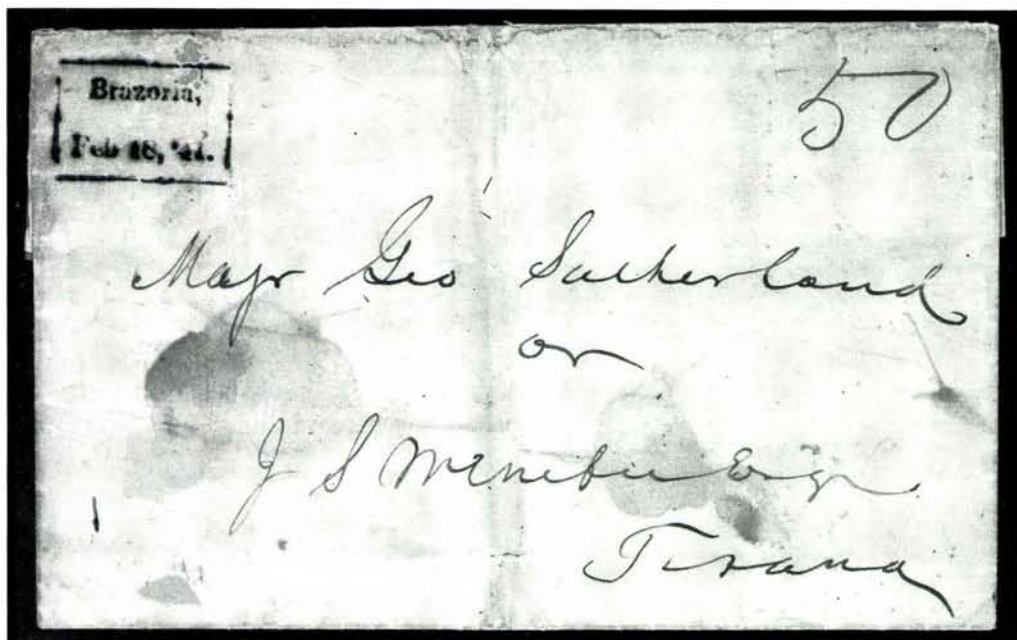 Brazoria,
Feb 18, '41.
50
Majr Geo Sutherland
or
J S Esqr
Texana